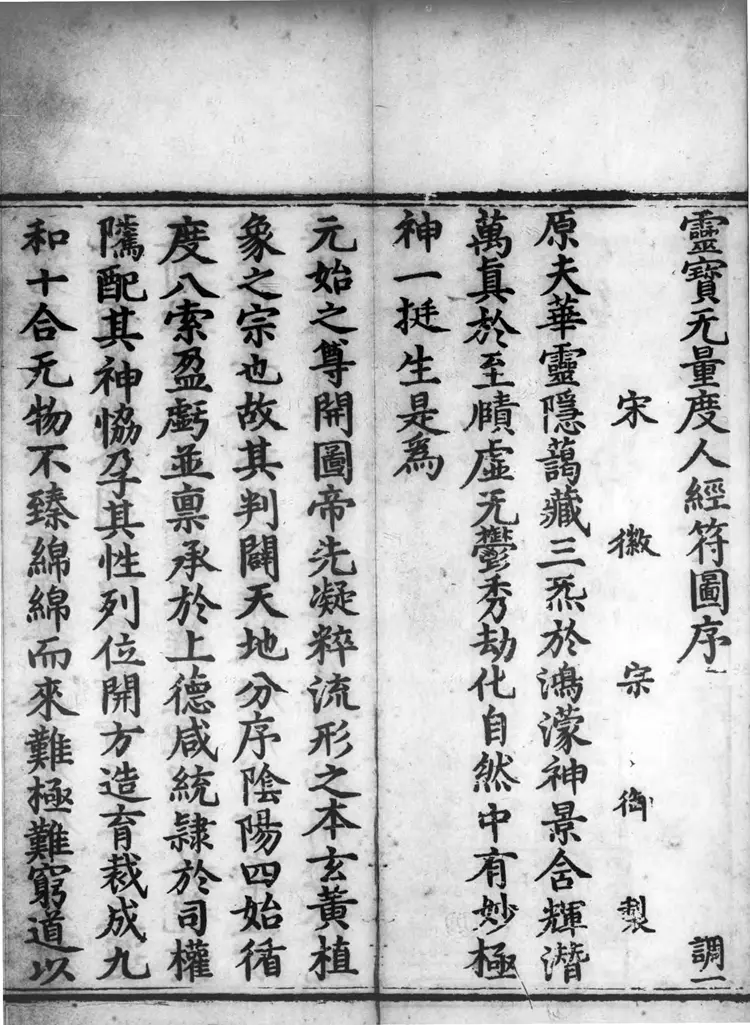 靈寶无量度人經符圖序 調一
宋徽宗御製
原夫華靈隱藹藏三炁於鴻濛神景含輝潛
萬真於至賾虛无鬱秀劫化自然中有妙極
神一挺生是爲
元始之尊開圖帝先凝粹流形之本玄黃植
象之宗也故其判闢天地分序陰陽四始循
度八索盈虧並禀承於上德咸統隷於司權
隲配其神恊孕其性列位開方造育裁成九
和十合无物不臻綿綿而來難極難窮道以